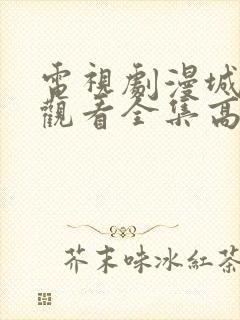 電視劇漫城
觀看全集高
芥末味冰紅茶